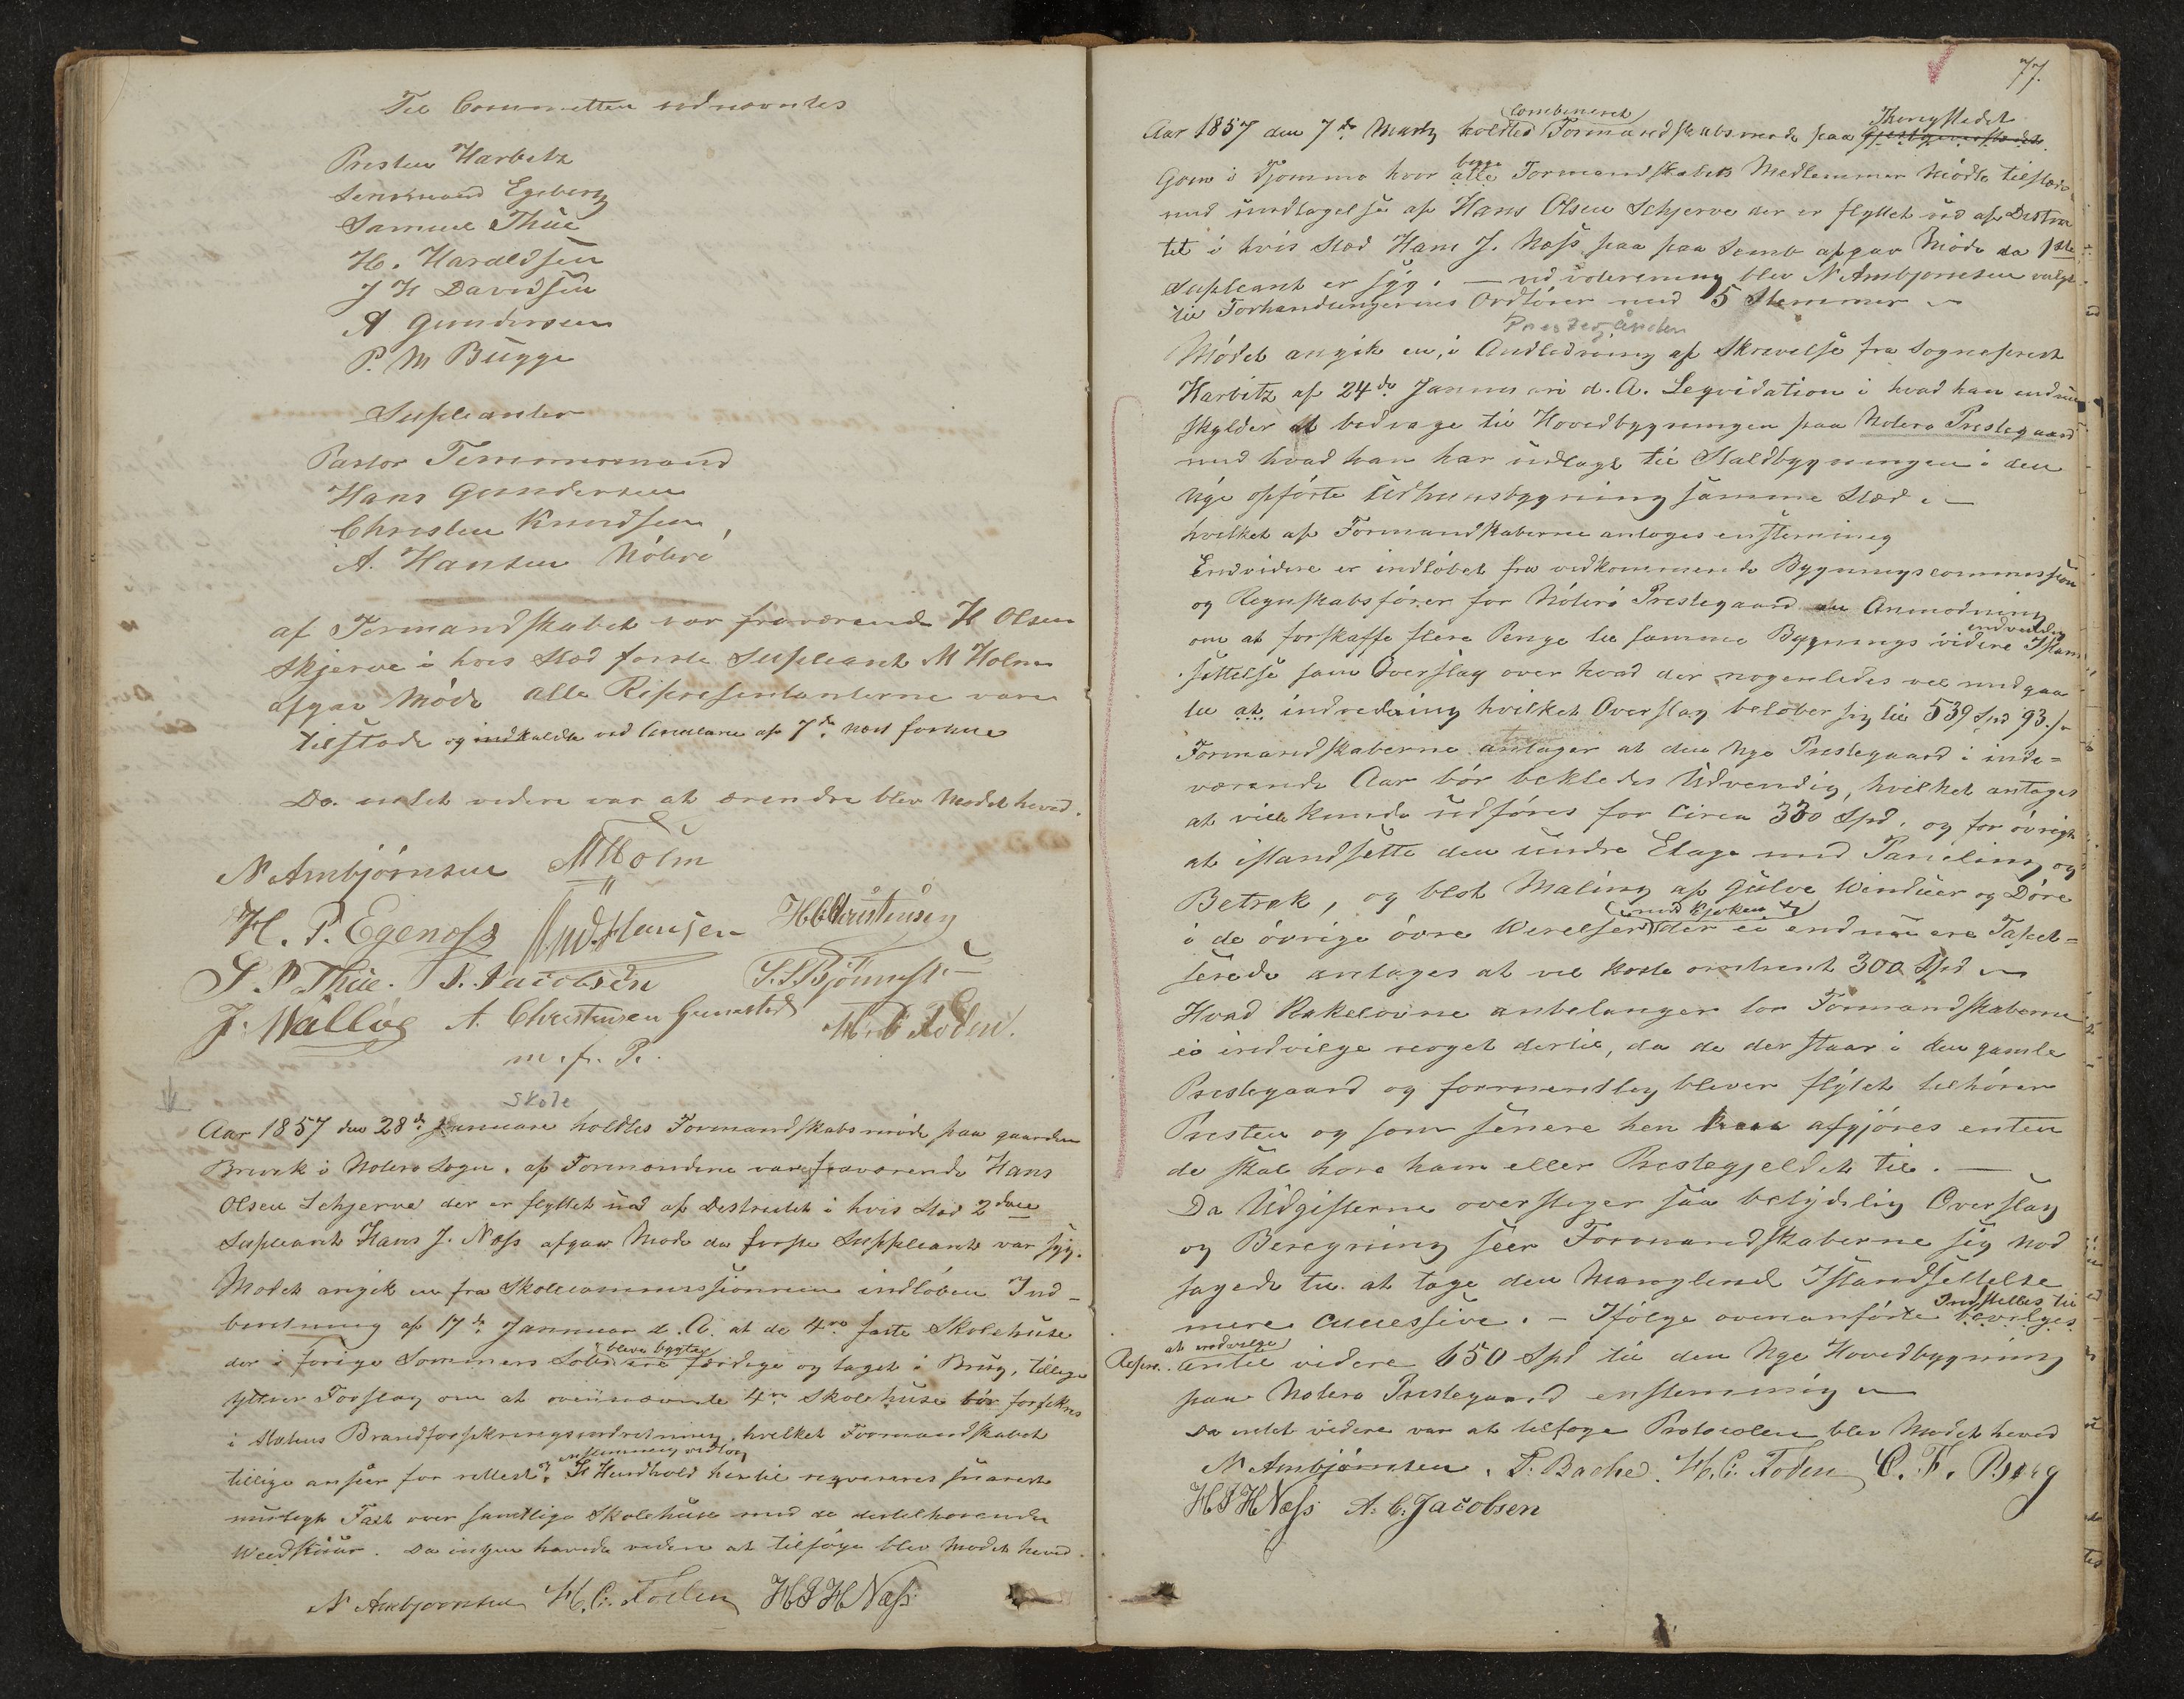 Til Committen udnævntes
Presten Harbitz
Ferdinand Egeberg
Samuel Thue
H. Haraldsen
J H Davidsen
A Gundersen
P. M Bugge
Supleanter
Pastor Temmermand
Hans Gundersen
Christen Knudsen,
A. Hansen Nóteró
af Formandskabet var fraværende H Olsen
Skjerve i hvis Sted forste Supleant M Holm
afgav Móde alle Represententerne vare
tilstæde og indkaldte ved Circulære af 7de næst forhen
Da intet videre var at erendre blev Mødet hevet.
N Ambjórnsen M Holm
H. P. Egenæss And. Hansen H C Christensen
S. P Thue. S. Jacobsen S. S. Bjónness
J. Wallóe A. Christensen Gunnestad H. C Foden.
m. f. P.
Skole
Aar 1857 den 28de Januare holdtes Formandskabsmóde paa gaarden
Brevek i Notero Sogn. af Formændene vare fraværende Hans
Olsen Schjerve der er flyttet ud af Destrictet i hvis Sted 2den
Supleant Hans J. Næss afgav Mode da forste Suppleant var syg.
Mødet angik en fra Skolecommissionnen indlóben Ind-
beretning af 17de Januar d. A. at de 4re faste Skolehuse
der i forige Sommers Lob bleve bygte ere færdige og taget i Brug, tillige
yttrer Forslag om at ovennævnte 4re Skolehuse bór forsikres
i Statens Brandforsikringsindretning, hvilket Formandskabet
tillige anseer for rettest og enstemmig vedtog. I Henhold hertil reqvireres snarest
muligst Taxt over samtlige Skolehuse med de dertilhorende
Weedskuur. Da ingen havde videre at tilfóye blev Mødet hevet.
N Ambjoornsen H. C. Foden H J H Næss
77.
Aar 1857 den 7de Marts holdtes combineret Formandskabsmøde paa Thingstedet Gjestgiverstedet
Goen i Tjømmø hvor begge alle Formandskabets Medlemmer módte tilstæde
med undtagelse af Hans Olsen Schjerve der er flyttet ud af Distric
tet i hvis Sted Hans J. Næss paa paa Semb afgav Móde da 1ste
Supleant er syg. — ved voterening blev N Ambjornsen valgt
til Forhandlingernes Ordfórer med 5 Stemmer —
Prestegården
Módet angik en, i Andledning af Skrivelse fra Sogneprest
Harbitz af 24de Januari d. A. Leqvidation i hvad han endnu
skylder at bedrage til Hovedbygningen paa Notero Prestegaard
med hvad han har udlagt til Staldbygningen i den
Nye opfórte Udhuusbygning samme Sted. —
hvilket af Formandskaberne antoges enstemmig
Endvidere er indlóbet fra vedkommende Bygningscommission
og Regnskabsfórer for Nóteró Prestegaard en Anmodning
om at forskaffe flere Penge til samme Bygnings indvendig videre Istand
settelse som Overslag over hvad der nogenledes vil medgaa
til at indredning hvilket Overslag belóber sig til 539 Spd 93 s
Formandskaberne antager at den Nye Prestegaard i inde=
værende Aar bór bekledes Udvendig, hvilket antages
at ville kunde udfóres for Circa 330 Spd. og for óvrigt
at istandsette den undre Etage med Paneling og
Betræk, og blot Maling af Gulve Winduer og Dóre
i de óvrige óvre Werelser med Kjóken der ei endnu ere Tapet=
serede antages at vil koste omtrent 300 Spd —
Hvad Kakelovne anbelanger tor Formandskaberne
ei indvilge noget dertil, da de der staar i den gamle
Prestegaard og formentlig bliver flyttet tilhórer
Presten og som senere hen kan afgjóres enten
de skal hore ham eller Prestegjeldet til. —
Da Udgifterne overstiger saa betydelig Overslag
og Beregning seer Formandskaberne sig nód
sagede til at tage den Manglende Istandsettelse
mere successive. — Ifólge ovenanfórte Indstilles til bevilges
Repr. at indvilge indtil videre 650 Spd til den Nye Hovedbygning
paa Notero Prestegaard enstemmig —
Da intet videre var at tilfoye Protocolen blev Mødet hevet
N Ambjórnsen. P. Bache. H. C. Foden C. F. Berg
H J H Næss A. C. Jacobsen